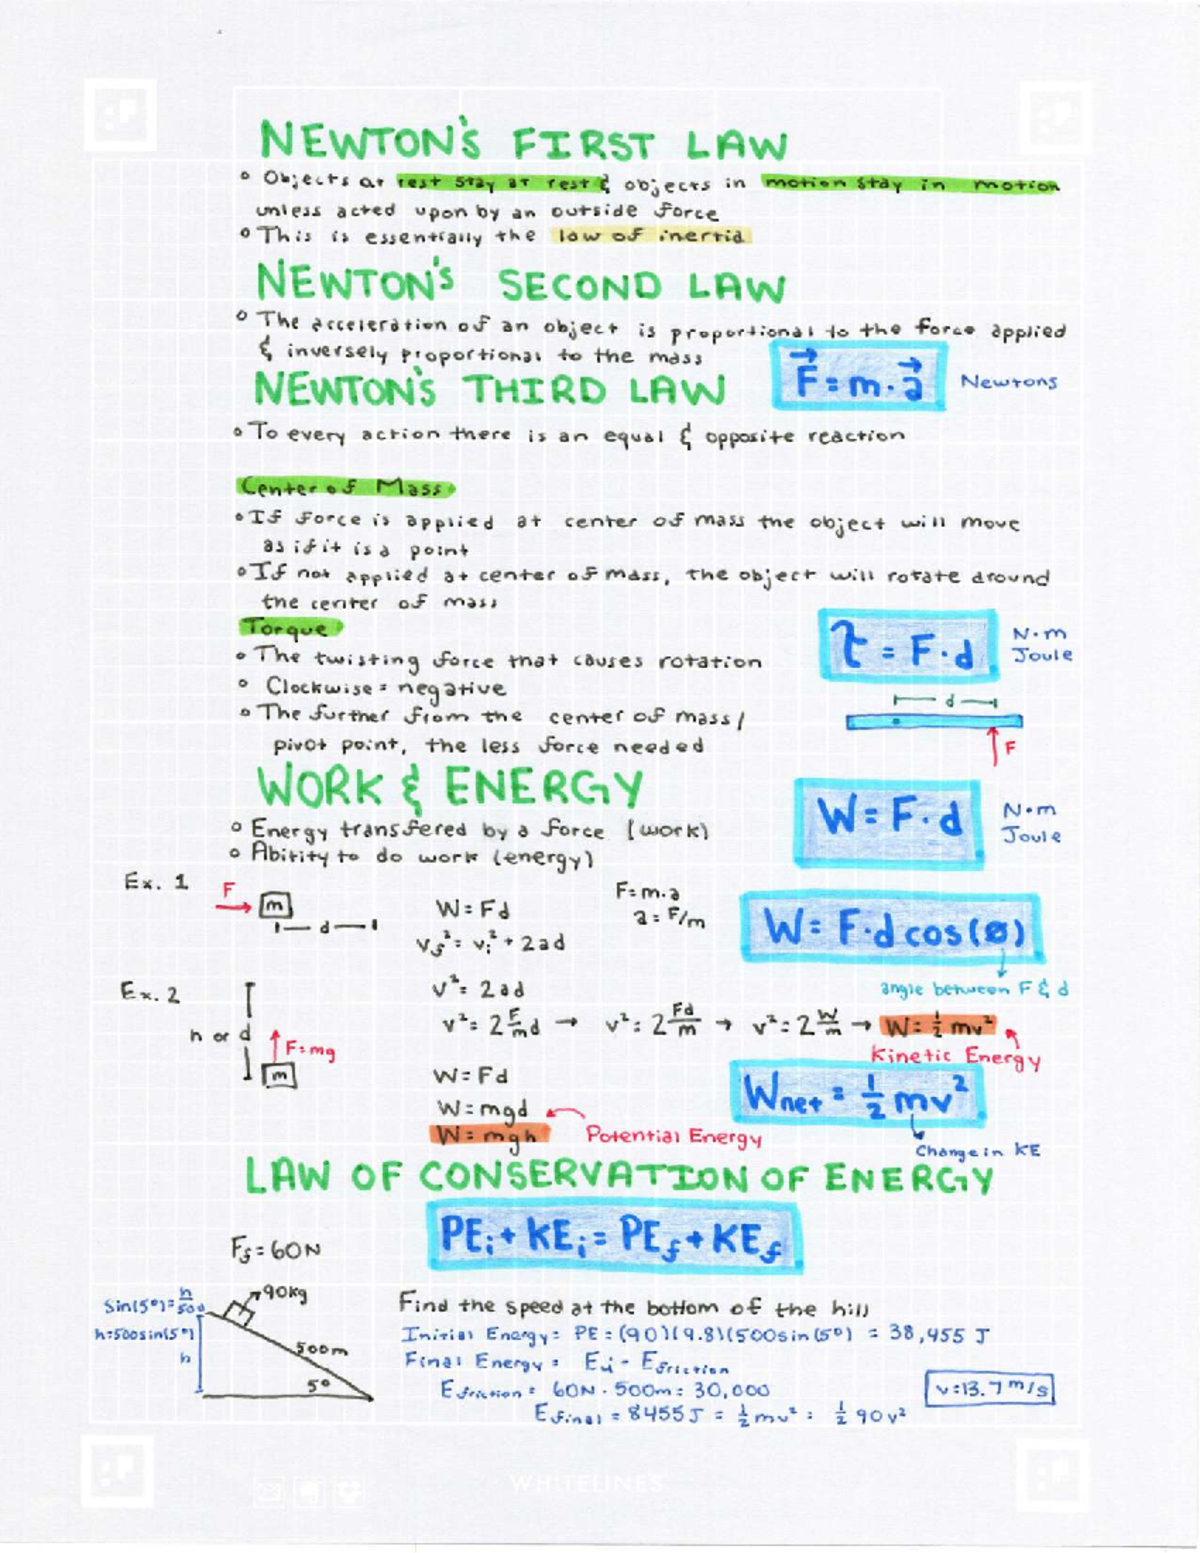 NEWTON'S FIRST LAW
° Objects at rest stay at rest & objects in motion stay in motion
unless acted upon by an outside force
° This is essentially the law of inertia
NEWTON'S SECOND LAW
° The acceleration of an object is proportional to the force applied
& inversely proportional to the mass
F = m · a Newtons
NEWTON'S THIRD LAW
° To every action there is an equal & opposite reaction
Center of Mass
° If force is applied at center of mass the object will move
as if it is a point
° If not applied at center of mass, the object will rotate around
the center of mass
Torque
° The twisting force that causes rotation
° Clockwise = negative
° The further from the center of mass/
pivot point, the less force needed
τ = F · d N·m
Joule
d
F
WORK & ENERGY
° Energy transfered by a force (work)
° Ability to do work (energy)
W = F · d N·m
Joule
Ex. 1
F
m
d
W = Fd
F = m·a
a = F/m
v_f² = v_i² + 2ad
W = F·d cos(ø)
angle between F & d
v² = 2ad
v² = 2 F/m d → v² = 2 Fd/m → v² = 2 W/m → W = ½ mv²
Kinetic Energy
Ex. 2
h or d
F = mg
m
W = Fd
W = mgd
W = mgh
Potential Energy
Wnet = ½ mv²
Change in KE
LAW OF CONSERVATION OF ENERGY
PE_i + KE_i = PE_f + KE_f
F_f = 60N
90kg
sin(5°) = h/500
h = 500sin(5°)
h
500m
5°
Find the speed at the bottom of the hill
Initial Energy = PE = (90)(9.8)(500sin(5°) = 38,455 J
Final Energy = E_i - E_friction
E_friction = 60N · 500m = 30,000
E_final = 8455J = ½ mv² = ½ 90v²
v = 13.7 m/s
WHITELINES